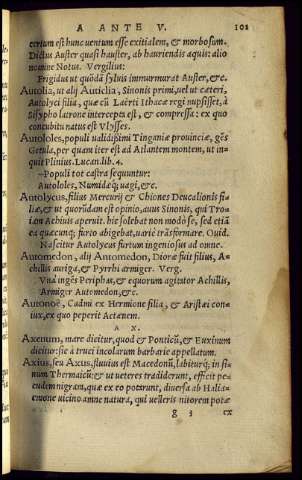 A ANTE V. 101
certum est hunc ventum esse exitialem, & morbosum.
Dictus Auster quasi hauster, ab hauriendis aquis: alio
nomine Notus. Vergilius:
Frigidus ut quōdā sylvis immurmurat Auster, &c.
Autolia, ut alij Auticlia, Sinonis primi, vel ut cæteri,
Autolyci filia, quæ cū Laërti Ithacæ regi nupsisset, à
Sisypho latrone intercepta est, & compressa: ex quo
concubitu natus est Vlysses.
Autololes, populi validissimi Tinganiæ provinciæ, gēs
Getula, per quam iter est ad Atlantem montem, ut in-
quit Plinius. Lucan. lib. 4.
–Populi tot castra sequuntur:
Autololes, Numidæq; vagi, &c.
Autolycus, filius Mercurij & Chiones Deucalionis fi-
liæ, & ut quorūdam est opinio, avus Sinonis, qui Tro-
iam Achivis aperuit. hic solebat non modò se, sed etiā
ea quæcunq; furto abigebat, variè trāsformare. Ovid.
Nascitur Autolycus furtum ingeniosus ad omne.
Automedon, alij Automedon, Dioræ fuit filius, A-
chillis auriga, & Pyrrhi armiger. Verg.
Vnà ingēs Periphas, & equorum agitator Achillis,
Armiger Automedon, &c.
Autonoë, Cadmi ex Hermione filia, & Aristæi con-
iux, ex quo peperit Actæonem.
A X.
Axenum, mare dicitur, quod & Ponticū, & Euxinum
dicitur: sic à truci incolarum barbarie appellatum.
Axius, seu Axus, fluvius est Macedonū, labiturq; in si-
num Thermaicū: & ut veteres tradiderunt, efficit pe-
cudem nigram, quæ ex eo potarint, diversa ab Halia-
cmone vicino amne natura, qui velleris nitorem potæ
g 3 ex